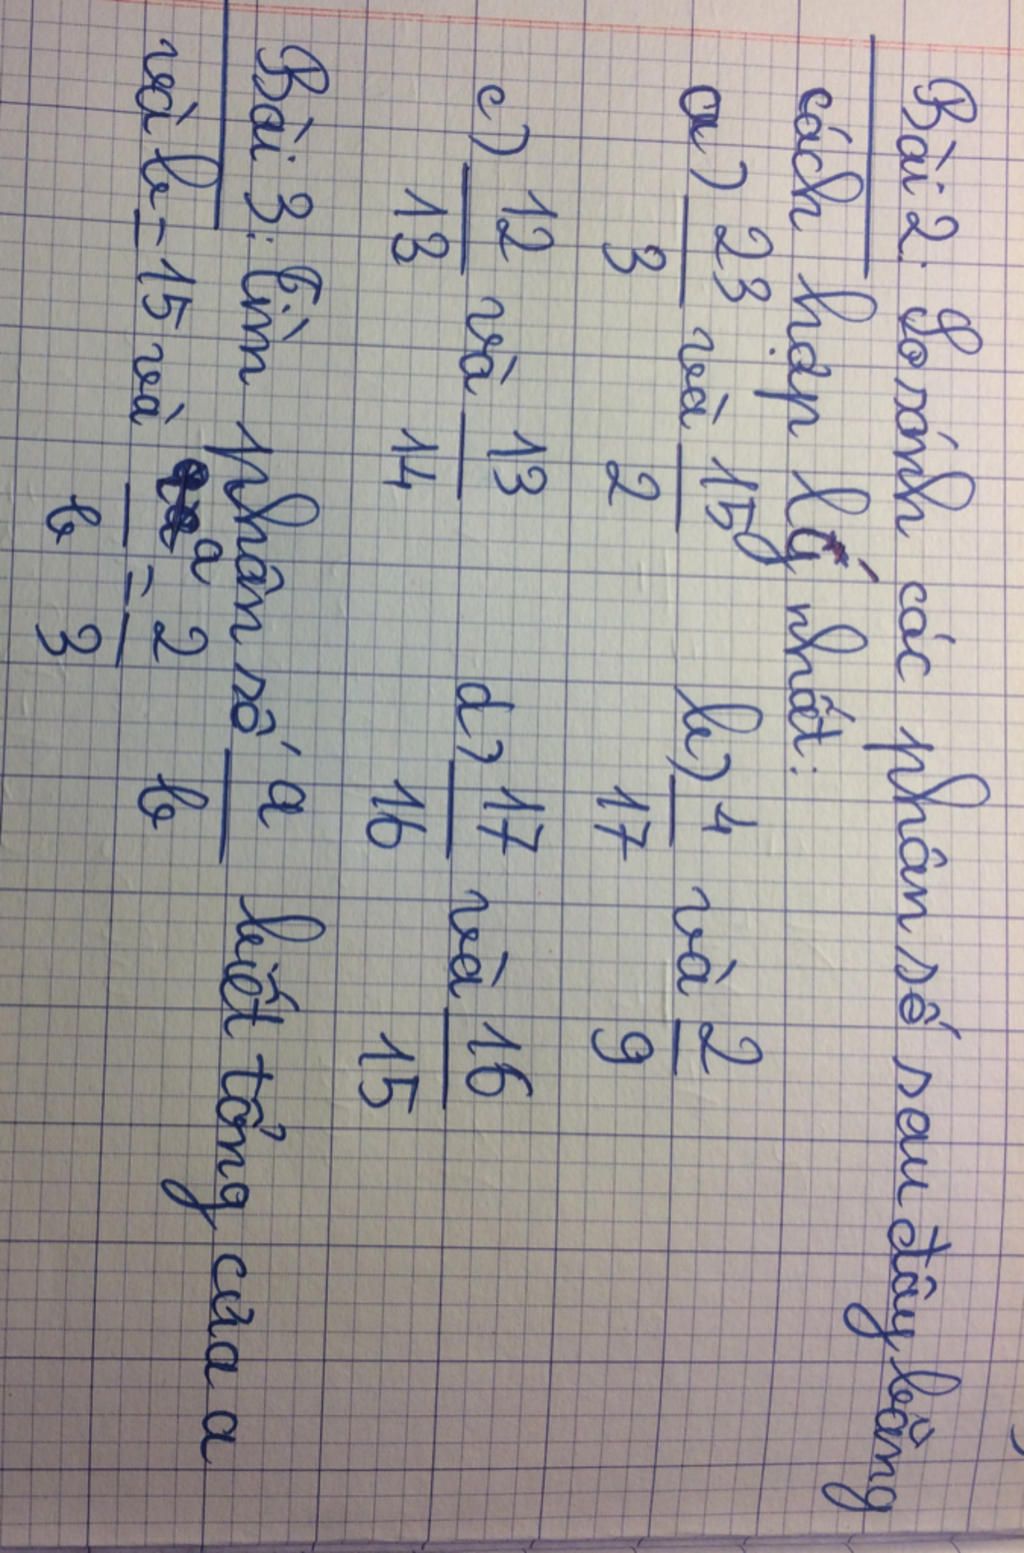 Bài 2: So sánh các phân số sau đây bằng
cách hợp lý nhất:
a) 23/3 và 15/2 b) 4/17 và 2/9
c) 12/13 và 13/14 d) 17/16 và 16/15
Bài 3: Tìm phân số a/b biết tổng của a
và b = 15 và a/b = 2/3